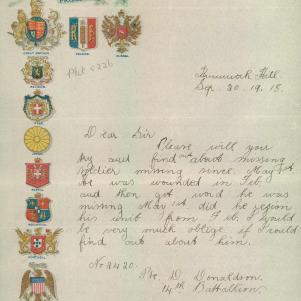 GREAT BRITAIN
FRANCE
RUSSIA
BELGIUM
SERBIA
PORTUGAL
Hill
Sep. 20. 19. 18.
Dear Sir
Please will you
try and find out about missing
soldier missing since May 1st
he was wounded in Feb,
and then got word he was
missing May 1st did he rejoin
his unit from Feb. I would
be very much oblige if I could
find out about him.
No 2420.
Pte. D. Donaldson.
14th Battallion.